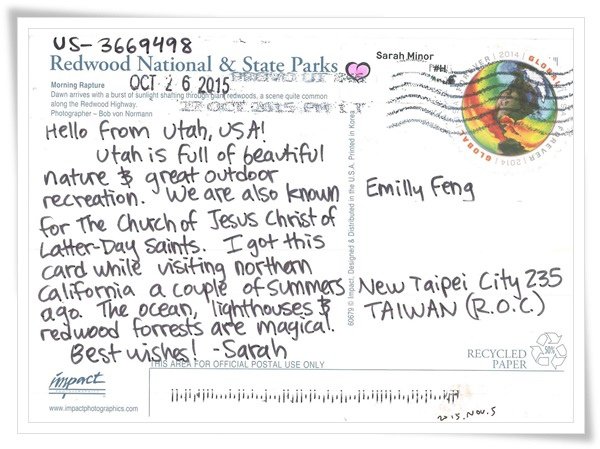 US-3669498
Redwood National & State Parks
Morning Rapture
OCT 26 2015
Dawn arrives with a burst of sunlight shafting through giant redwoods, a scene quite common
along the Redwood Highway.
Photographer – Bob von Normann
27 OCT 2015 PM 1 T
Sarah Minor
#H
GLOBAL FOREVER 2014
GLOBAL FOREVER 2014
Hello from Utah, USA!
Utah is full of beautiful
nature & great outdoor
recreation. We are also known
for The Church of Jesus Christ of
Latter-Day Saints. I got this
card while visiting northern
California a couple of summers
ago. The ocean, lighthouses &
redwood forrests are magical.
Best wishes! -Sarah
60679 © Impact, Designed & Distributed in the U.S.A. Printed in Korea
Emilly Feng
New Taipei City 235
TAIWAN (R.O.C.)
RECYCLED
PAPER
50%
THIS AREA FOR OFFICIAL POSTAL USE ONLY
impact
www.impactphotographics.com
2015.NOV.5